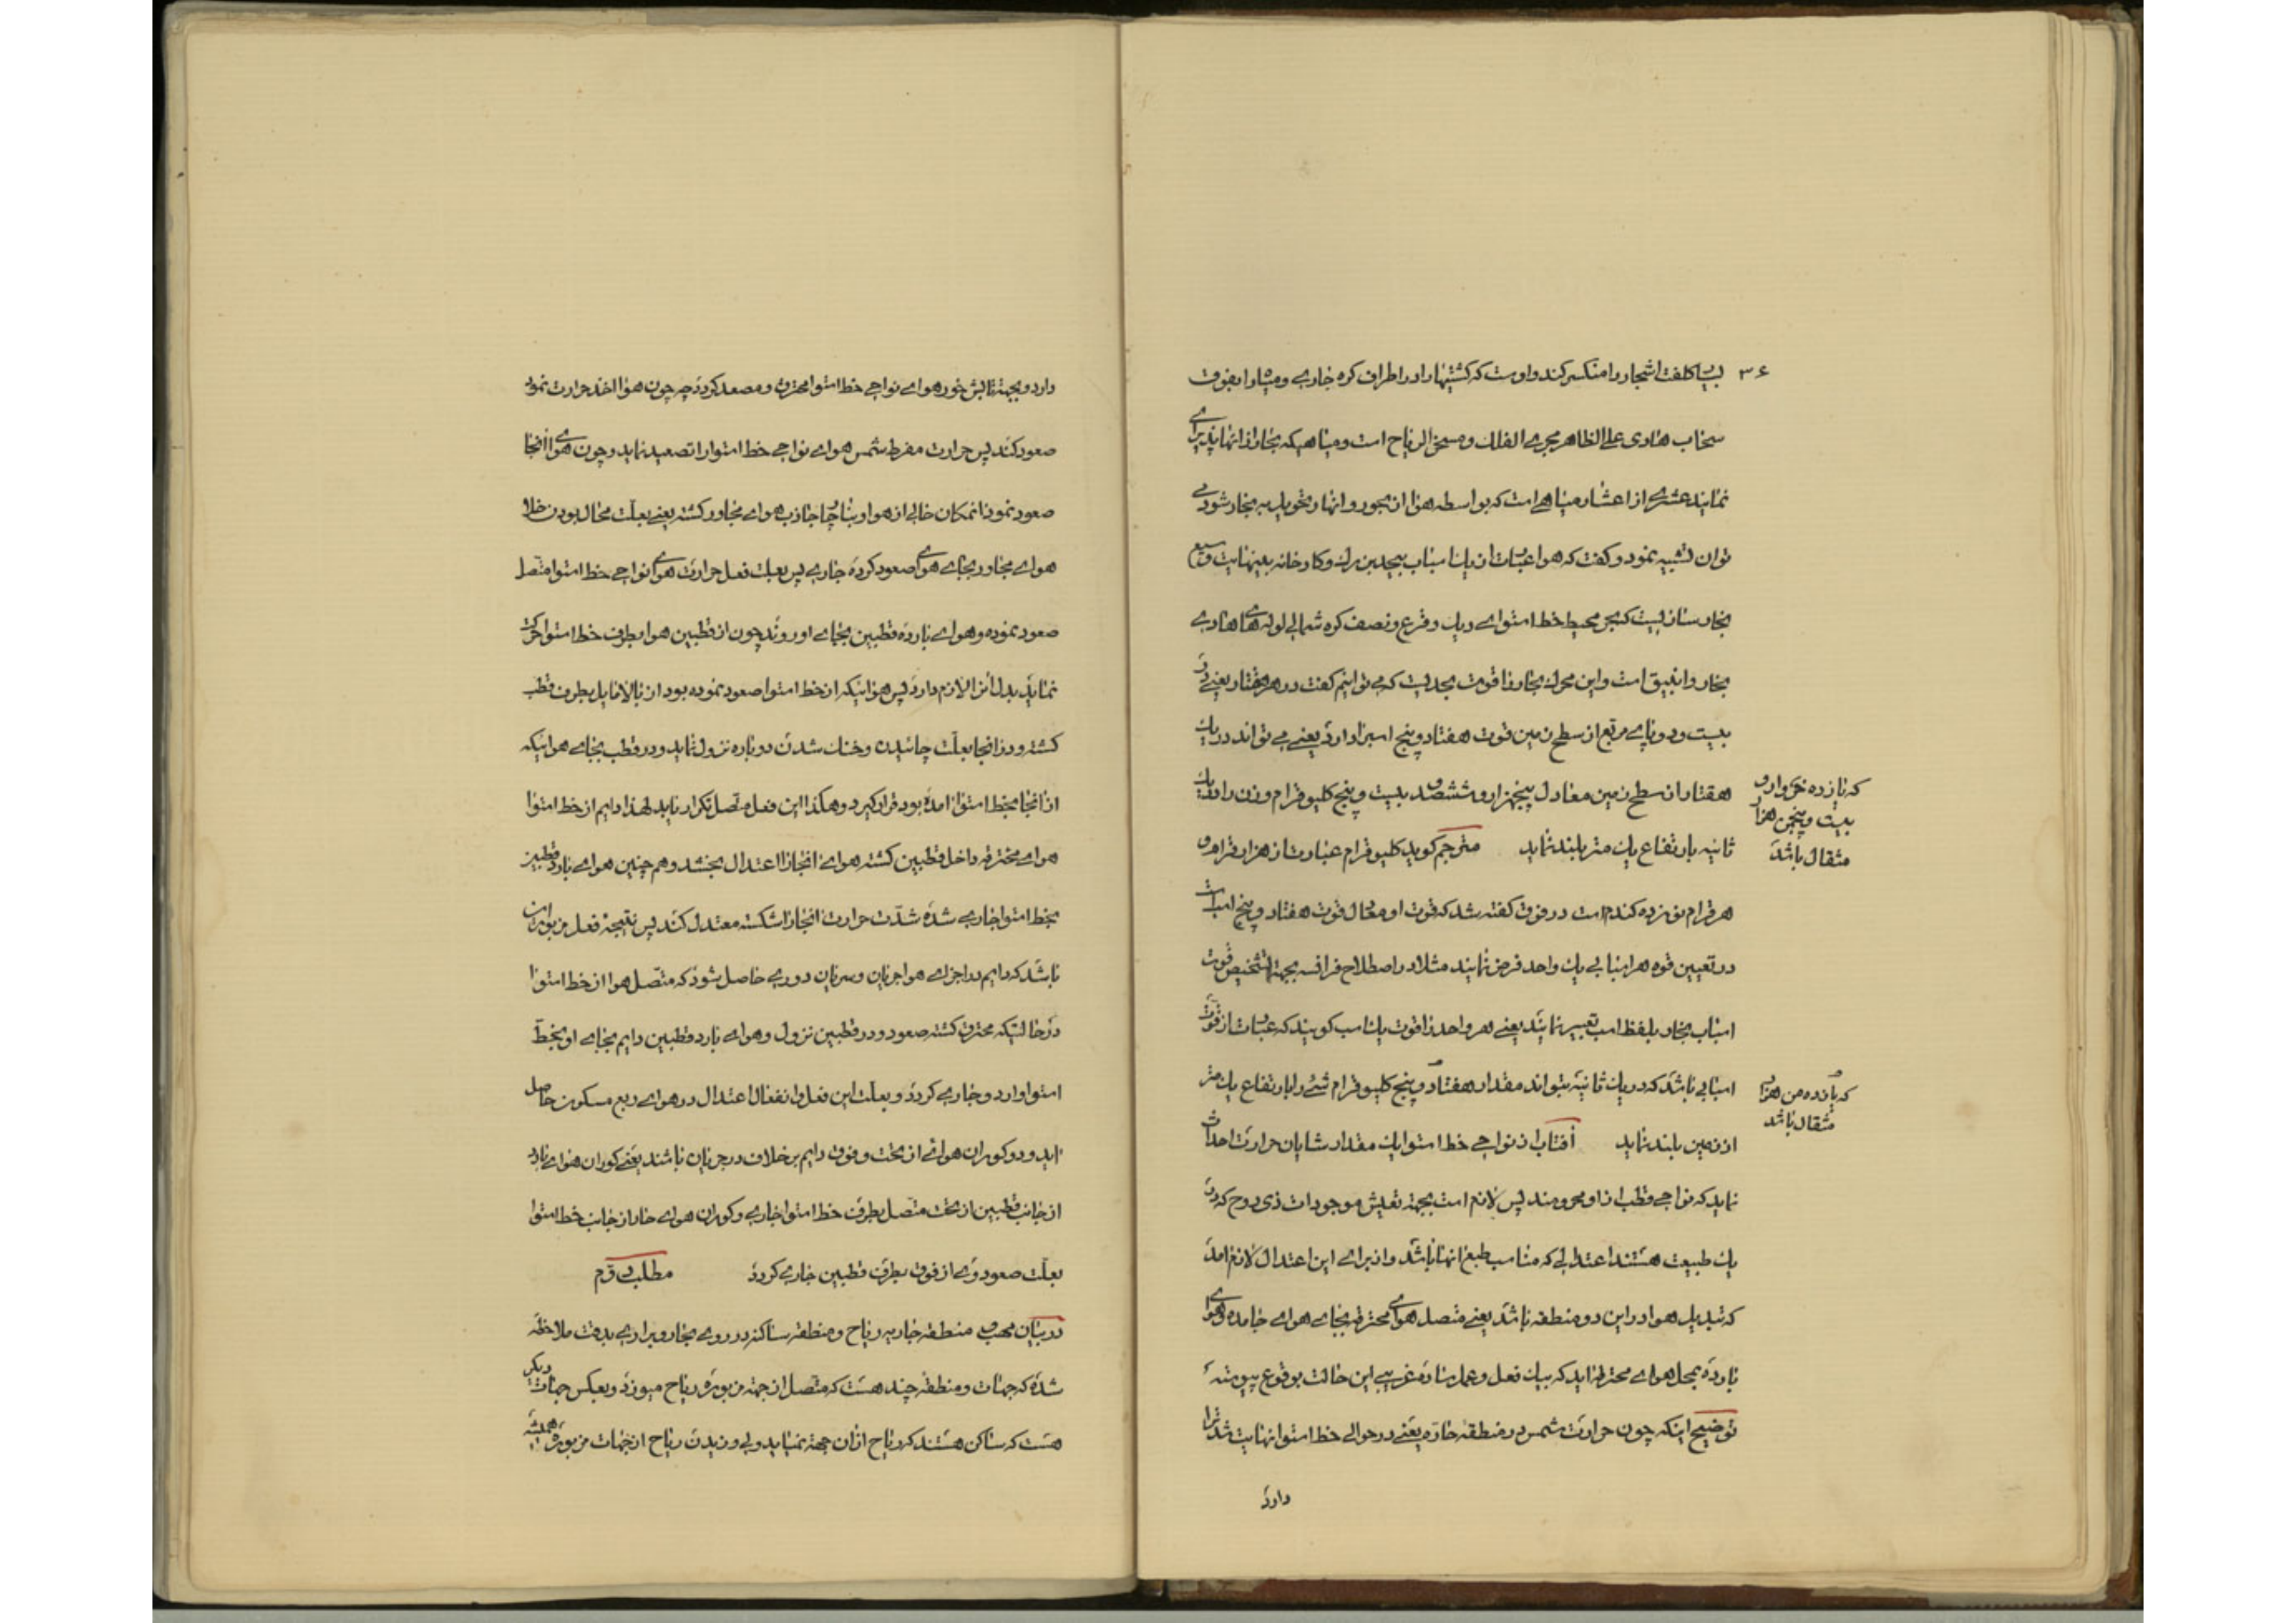 ۳۶
بسیا کلفت اشجار را منکسر کند و اوست که کشتیها را در اطراف کره جاری و میشا را بفوق
سحاب هادی علی الظاهر مجری الفلک و مسخر الریاح است و میاهیکه بخار از انها پذیرای
نمایند عشری از اعشار میاهی است که بواسطه هوا از بحور و انهار تحویل به بخار شود می
توان تشبیه نمود و گفت که هوا عبارت از یک اسباب بیحد بزرک و کارخانه بینهایت وسیع
بخار ساز نیست که بحر محیط خط استوای دیک و قرع و نصف کره شمالی لوله های هادی
بخار و انبیق است و این محرک بخار را قوت بحدیست که می توانیم گفت در هر هقتار یعنی در
بیست و دو پای مربع از سطح زمین قوت هفتاد و پنج اسب را دارد یعنی می تواند در یک
هقتار از سطح زمین معادل پنجهزار و ششصد بیست و پنج کلیوقرام وزن را در یک
که پازده خروار و
بیست و پنجمن هزار
مثقال باشد
ثانیه بارتفاع یک متر بلند نماید مترجم کوید کلیوقرام عبارت از هزار قرام و
هر قرام نوزده کندم است در فوق کفته شد که قوت او معادل قوت هفتاد و پنج اسب است
در تعیین قوه هر اسبابی یک واحد فرض نمایند مثلا در اصطلاح فرانسه بجهة تشخیص قوت
اسباب بخار بلفظ اسب تعبیر نمایند یعنی هر واحد را قوت یک اسب کویند که عبارت از قوت
اسبابی باشد که در یک ثانیه بتواند مقدار هفتاد و پنج کلیوقرام شئ را بارتفاع یک متر
که پازده من هزار
مثقال باشد
از زمین بلند نماید آفتاب از نواحی خط استوا یک مقدار شایان حرارت احداث
نماید که نواحی قطب از او محرومند پس لازم است بجهة تعیش موجودات ذی روح که در
یک طبیعت هستند اعتدالی که مناسب طبع انها باشد و از برای این اعتدال لازم امد
که تبدیل هوا در این دو منطقه باشد یعنی متصل هوای محترقه بجای هوای جامده و هوای
بارده بمحل هوای محترقه اید که بیک فعل و عمل ساده غریبی این حالت بوقوع پیوسته
توضیح اینکه چون حرارت شمس در منطقه حاره یعنی در حوالی خط استوا نهایت شدت را
دارد
دارد و بجهة تابش خور هوای نواحی خط استوا محترق و مصعد کردد چه چون هوا اخذ حرارت نمود
صعود کند پس حرارت مفرط شمس هوای نواحی خط استوا را تصعید نماید و چون هوای انجا
صعود نمود انمکان خالی از هوا و بناچار جاذب هوای مجاور کشته یعنی بعلت محال بودن خلا
هوای مجاور بجای هوای صعود کرده جاری پس بعلت فعل حرارت هوای نواحی خط استوا متصل
صعود نموده و هوای بارده قطبین بجای او روند چون از قطبین هوا بطرف خط استوا حرکت
نماید بدل انرا لازم دارد پس هوائیکه از خط استوا صعود نموده بود از بالا مایل بطرف قطب
کشته و در انجا بعلت چائیدن و خنک شدن دوباره نزول نماید و در قطب بجای هوائیکه
از انجا بخط استوا امده بود قرار کیرد و هکذا این فعل متصل تکرار نماید لهذا دایم از خط استوا
هوای محترقه داخل قطبین کشته هوای انجا را اعتدال بخشد و هم چنین هوای بارد قطبین
بخط استوا جاری شده شدت حرارت انجا را شکسته معتدل کند پس نتیجه فعل مزبور این
باشد که دایم در اجزای هوا جریان و سریان دوری حاصل شود که متصل هوا از خط استوا
در حالتیکه محترق کشته صعود و در قطبین نزول و هوای بارد قطبین دایم بجای او بخط
استوا وارد و جاری کردد و بعلت این فعل و انفعال اعتدال در هوای ربع مسکون حاصل
اید و دو کوران هوائی از تحت و فوق دایم بر خلاف در جریان باشند یعنی کوران هوای بارد
از جانب قطبین از تحت متصل بطرف خط استوا جاری و کوران هوای حار از جانب خط استوا
بعلت صعود وی از فوق بطرف قطبین جاری کردد مطلب دویم
در بیان مهب و منطقه جاریه ریاح و منطقه ساکنه در روی بحار و براری بدقت ملاحظه
شده که جهات و منطقه چند هست که متصل از جهة مزبوره ریاح میوزد و بعکس جهات دیکر
هست که ساکن هستند که ریاح از ان جهة نمیاید ولی وزیدن ریاح از جهات مزبوره همیشه